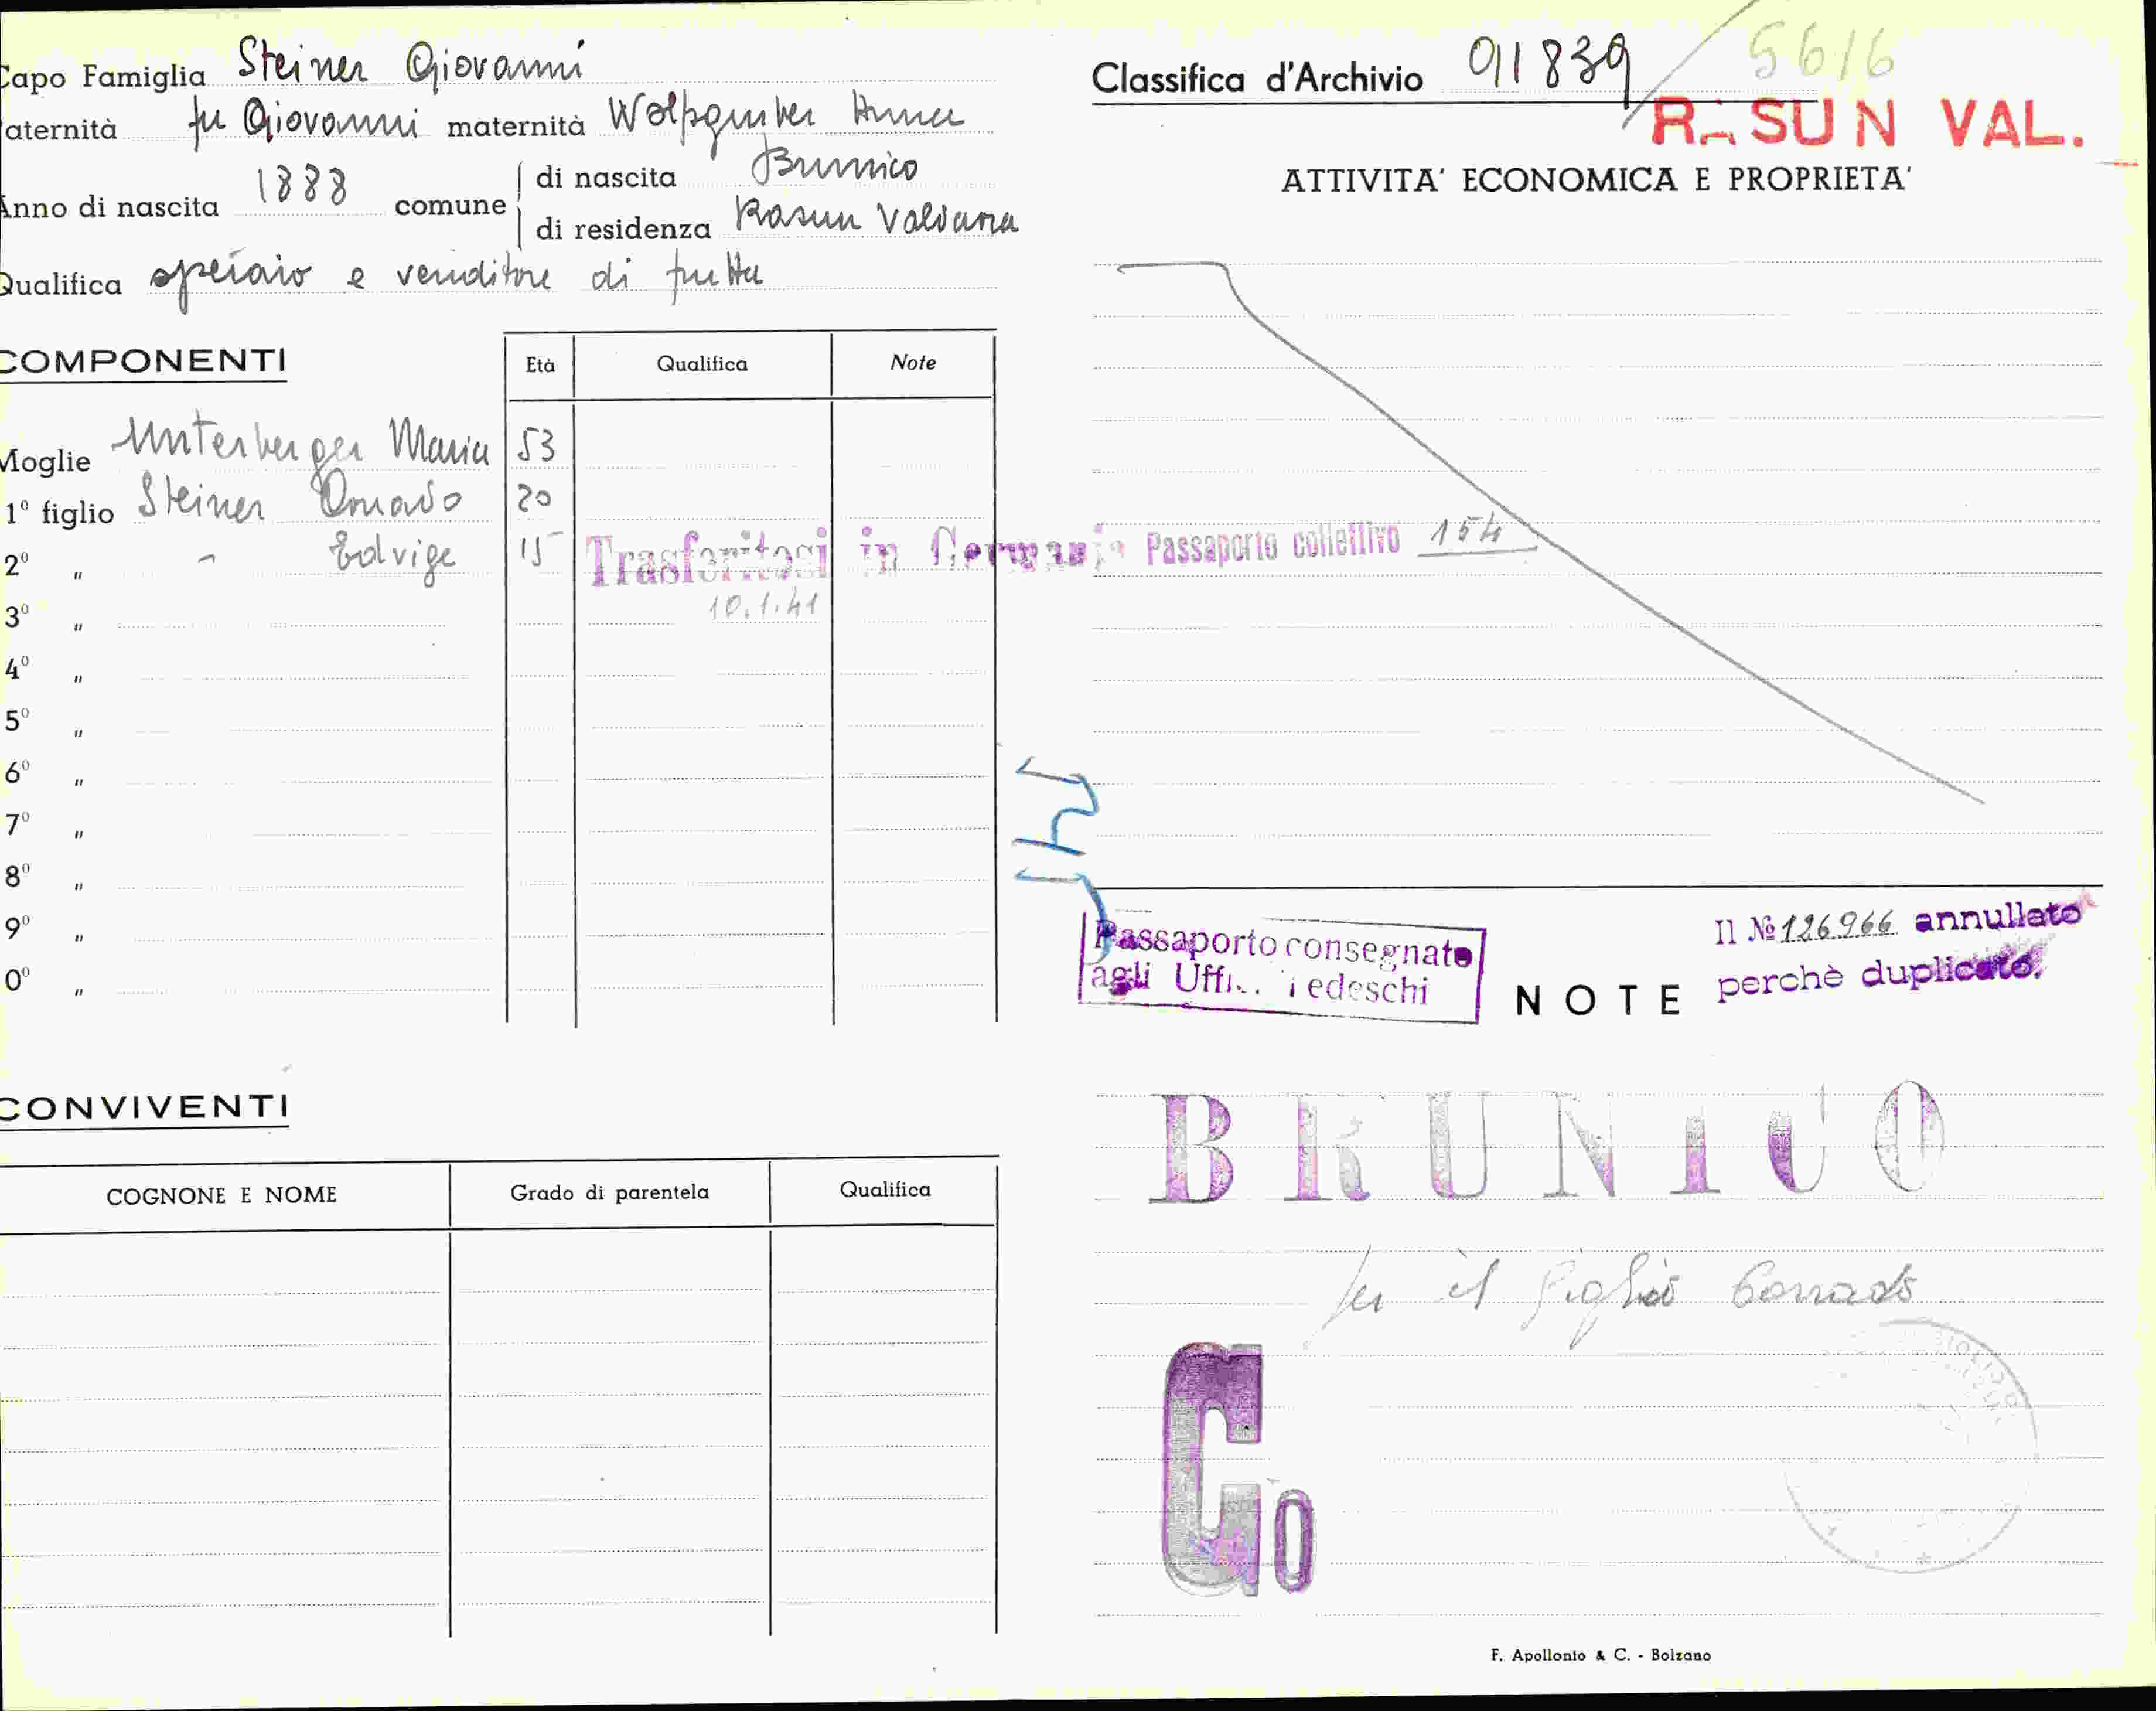 Capo Famiglia Steiner Giovanni
aternità fu Giovanni maternità Wolfsgruber Anna
Anno di nascita 1888 comune di nascita Brunico
di residenza Rasun Valdaora
Qualifica operaio e venditore di frutta
COMPONENTI Età Qualifica Note
Moglie Unterberger Maria 53
1º figlio Steiner 20
2º " - Edvige 15 Trasferitosi in Germania Passaporto collettivo 154
10.1.41
3º "
4º "
5º "
6º "
7º "
8º "
9º "
0º "
CONVIVENTI
COGNONE E NOME Grado di parentela Qualifica
Classifica d'Archivio 91839 / 5616
RASUN VAL.
ATTIVITA' ECONOMICA E PROPRIETA'
Passaporto consegnato
agli Uffi.. Tedeschi
NOTE
Il № 126966 annullato
perchè duplicato.
BRUNICO
per il figlio Corrado
Go
F. Apollonio & C. - Bolzano